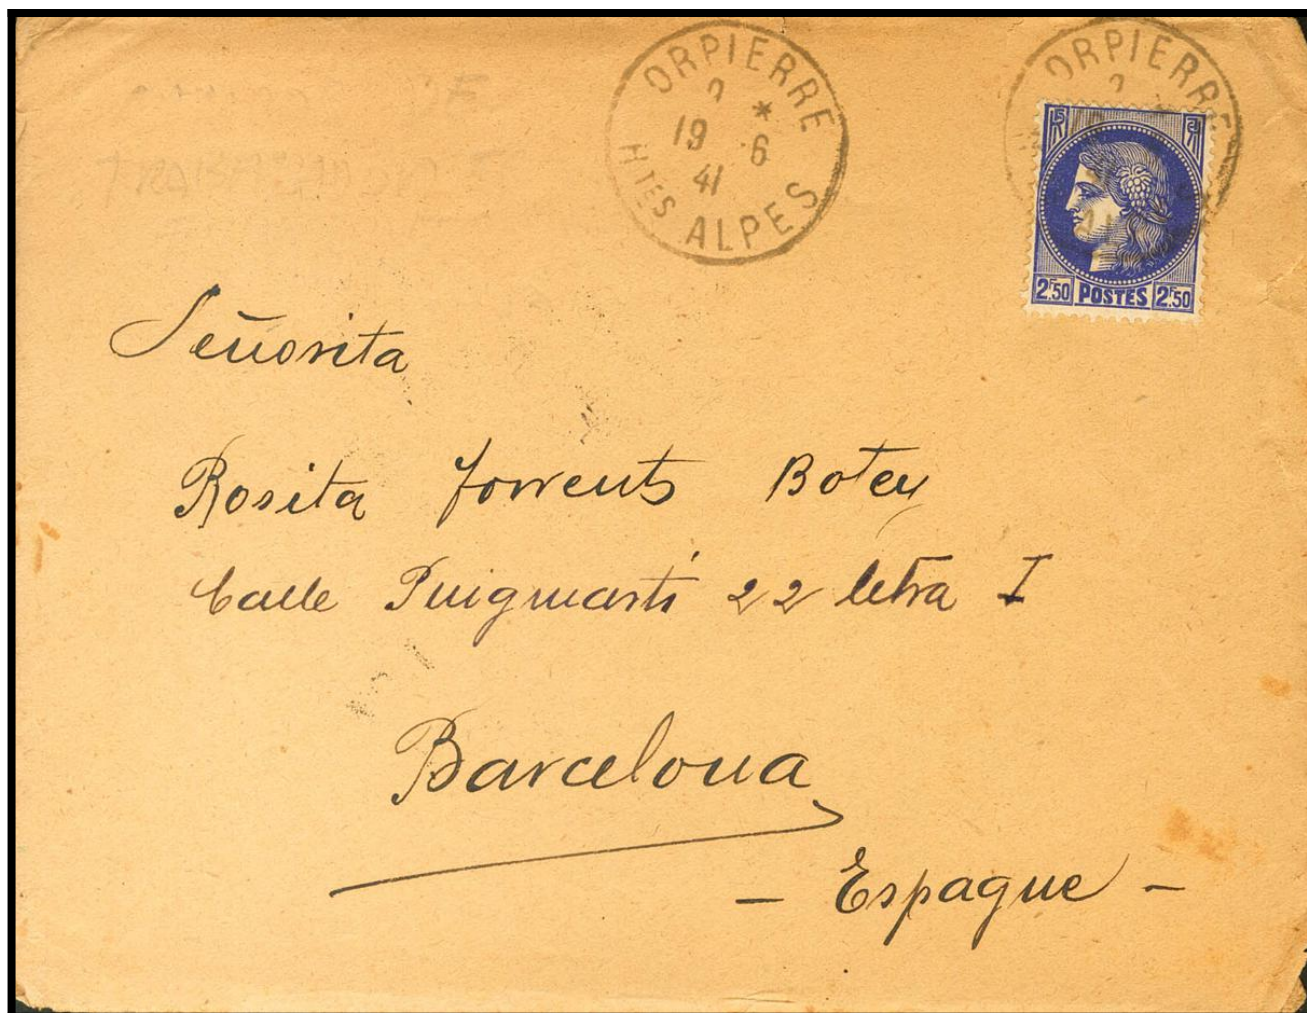 ORPIERRE
*
19 6
41
HTES ALPES
ORPIERRE
RF
2F50 POSTES 2F50
Señorita
Rosita Torrents Botey
Calle Puigmartí 22 letra I
Barcelona
- Espagne -